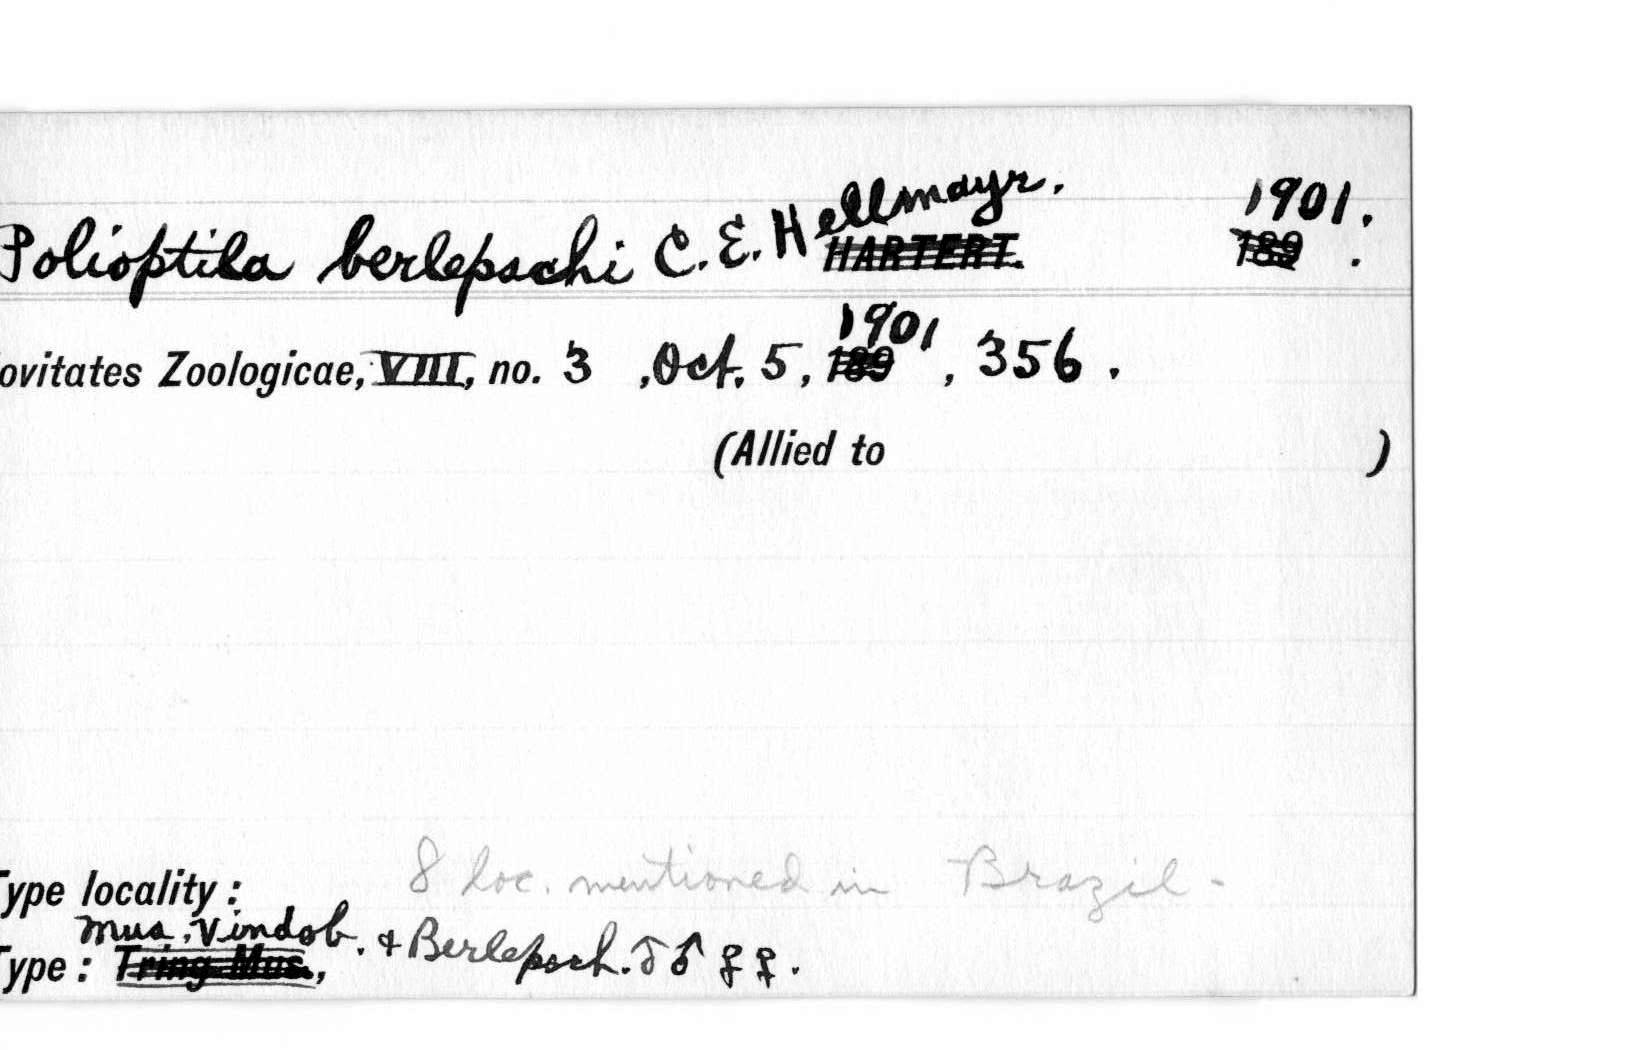 Polioptila berlepschi C. E. Hellmayr. 1901.
HARTERT. 189 .
ovitates Zoologicae, VIII, no. 3 , Oct. 5, 1901 189 , 356 .
(Allied to )
Type locality : 8 loc. mentioned in Brazil -
Mus. Vindob. & Berlepsch. ♂♂ ♀♀.
Type : Tring Mus.,